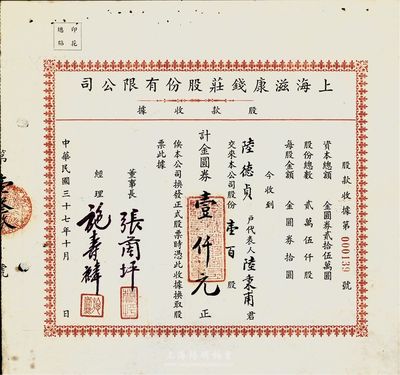 印花總貼
上海滋康錢莊股份有限公司
股款收據
股款收據第0000139號
資本總額 金圓券貳拾伍萬圓
股份總數 貳萬伍仟股
每股金額 金圓券拾圓
今收到
陸德貞 戶代表人 陸秉甫 君
交來本公司股份 壹百 股
計金圓券 壹仟元 正
俟本公司換發正式股票時憑此收據換取股
票此據
董事長 張蘭坪
經理 施壽麟
中華民國三十七年十月 日
第
號